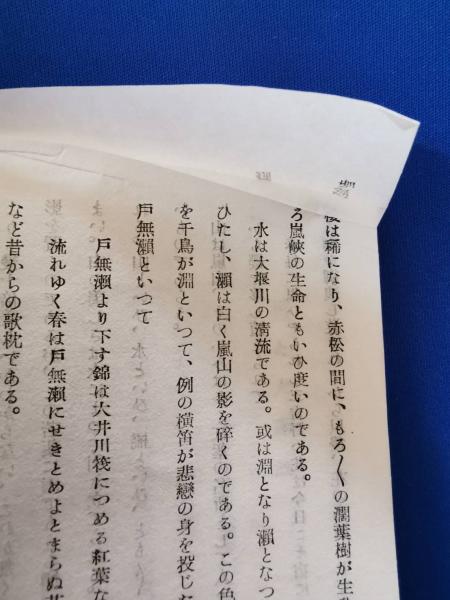 桜は稀になり、赤松の間に、もろ〱の濶葉樹が生
ろ嵐峡の生命ともいひ度いのである。
水は大堰川の清流である。或は淵となり瀬となつ
ひたし、瀬は白く嵐山の影を碎くのである。この色
を千鳥が淵といつて、例の横笛が悲戀の身を投じた
戸無瀬といつて
戸無瀬より下す錦は大井川筏につめる紅葉な
流れゆく春は戸無瀬にせきとめよとまらぬ花
など昔からの歌枕である。